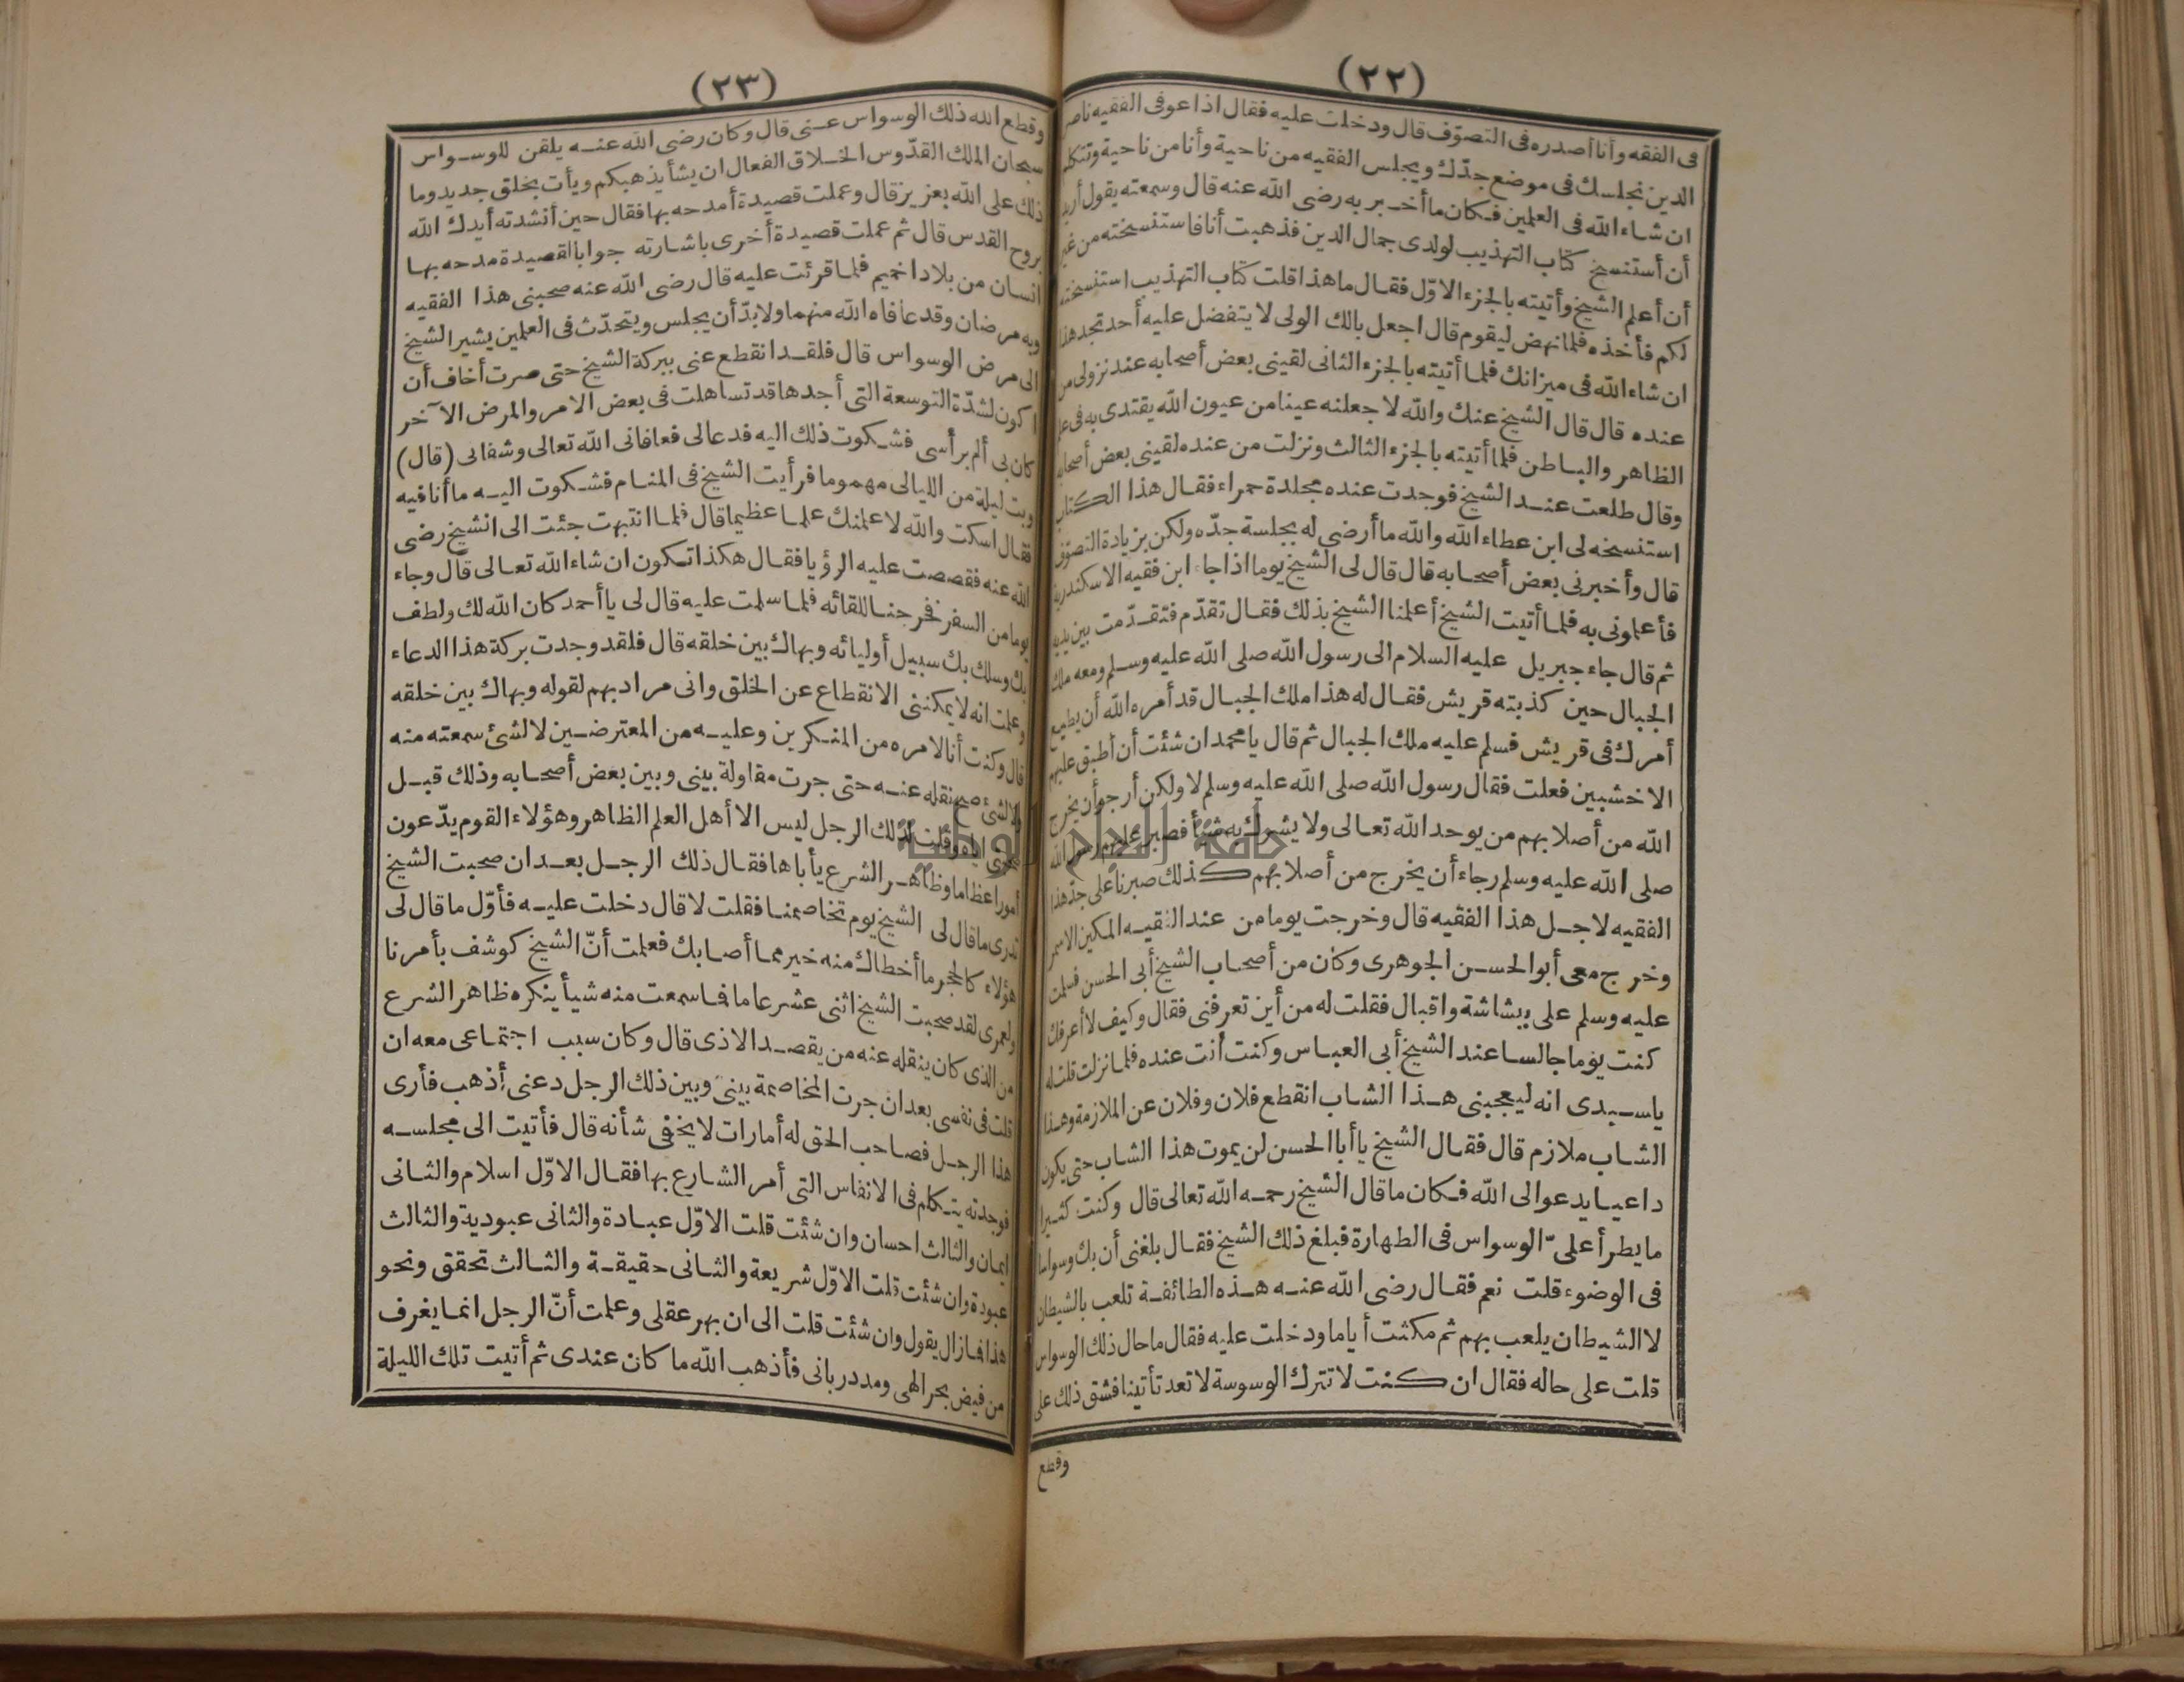 (٢٢)
فى الفقه وأنا أصدره فى التصوّف قال ودخلت عليه فقال اذا عوفى الفقيه ناصر
الدين نجلسك فى موضع جدّك ويجلس الفقيه من ناحية وأنا من ناحية وتتكلم
ان شاء الله فى العلمين فكان ما أخبر به رضى الله عنه قال وسمعته يقول أريد
أن أستنسخ كتاب التهذيب لولدى جمال الدين فذهبت أنا فاستنسخته من غير
أن أعلم الشيخ وأتيته بالجزء الاوّل فقال ما هذا قلت كتاب التهذيب استنسخته
لكم فأخذه فلما نهض ليقوم قال اجعل بالك الولى لا يتفضل عليه أحد تجد هذا
ان شاء الله فى ميزانك فلما أتيته بالجزء الثانى لقينى بعض أصحابه عند نزولى من
عنده قال قال الشيخ عنك والله لاجعلنه عينا من عيون الله يقتدى به فى علم
الظاهر والباطن فلما أتيته بالجزء الثالث ونزلت من عنده لقينى بعض أصحابه
وقال طلعت عند الشيخ فوجدت عنده مجلدة حمراء فقال هذا الكتاب
استنسخه لى ابن عطاء الله والله ما أرضى له بجلسة جدّه ولكن بزيادة التصوّف
قال وأخبرنى بعض أصحابه قال قال لى الشيخ يوما اذا جاء ابن فقيه الاسكندرية
فأعلمونى به فلما أتيت الشيخ أعلمنا الشيخ بذلك فقال تقدّم فتقدّمت بين يديه
ثم قال جاء جبريل عليه السلام الى رسول الله صلى الله عليه وسلم ومعه ملك
الجبال حين كذبته قريش فقال له هذا ملك الجبال قد أمره الله أن يطيع
أمرك فى قريش فسلم عليه ملك الجبال ثم قال يا محمد ان شئت أن أطبق عليهم
الاخشبين فعلت فقال رسول الله صلى الله عليه وسلم لا ولكن أرجو أن يخرج
الله من أصلابهم من يوحد الله تعالى ولا يشرك به شيأ فصبر عليهم رسول الله
صلى الله عليه وسلم رجاء أن يخرج من أصلابهم كذلك صبرنا على جد هذا
الفقيه لاجل هذا الفقيه قال وخرجت يوما من عند الفقيه المكين الاسمر
وخرج معى أبو الحسن الجوهرى وكان من أصحاب الشيخ أبى الحسن فسلمت
عليه وسلم على ببشاشة واقبال فقلت له من أين تعرفنى فقال وكيف لا أعرفك
كنت يوما جالسا عند الشيخ أبى العباس وكنت أنت عنده فلما نزلت قلت له
ياسيدى انه ليعجبنى هذا الشاب انقطع فلان وفلان عن الملازمة وهذا
الشاب ملازم قال فقال الشيخ يا أبا الحسن لن يموت هذا الشاب حتى يكون
داعيا يدعو الى الله فكان ما قال الشيخ رحمه الله تعالى قال وكنت كثيرا
ما يطرأ علىّ الوسواس فى الطهارة فبلغ ذلك الشيخ فقال بلغنى أن بك وسواسا
فى الوضوء قلت نعم فقال رضى الله عنه هذه الطائفة تلعب بالشيطان
لا الشيطان يلعب بهم ثم مكثت أياما ودخلت عليه فقال ما حال ذلك الوسواس
قلت على حاله فقال ان كنت لا تترك الوسوسة لا تعد تأتينا فشق ذلك على
وقطع
(٢٣)
وقطع الله ذلك الوسواس عنى قال وكان رضى الله عنه يلقن للوسواس
سبحان الملك القدّوس الخلاق الفعال ان يشأ يذهبكم ويأت بخلق جديد وما
ذلك على الله بعزيز قال وعملت قصيدة أمدحه بها فقال حين أنشدته أيدك الله
بروح القدس قال ثم عملت قصيدة أخرى باشارته جوابا لقصيدة مدحه بها
انسان من بلاد اخميم فلما قرئت عليه قال رضى الله عنه صحبنى هذا الفقيه
وبه مرضان وقد عافاه الله منهما ولا بدّ أن يجلس ويتحدّث فى العلمين يشير الشيخ
الى مرض الوسواس قال فلقد انقطع عنى ببركة الشيخ حتى صرت أخاف أن
اكون لشدّة التوسعة التى أجدها قد تساهلت فى بعض الامر والمرض الآخر
كان بى ألم برأسى فشكوت ذلك اليه فدعا لى فعافانى الله تعالى وشفانى (قال)
وبت ليلة من الليالى مهموما فرأيت الشيخ فى المنام فشكوت اليه ما أنا فيه
فقال اسكت والله لاعلمنك علما عظيما قال فلما انتبهت جئت الى الشيخ رضى
الله عنه فقصصت عليه الرؤيا فقال هكذا تكون ان شاء الله تعالى قال وجاء
يوما من السفر فخرجنا للقائه فلما سلمت عليه قال لى يا أحمد كان الله لك ولطف
بك وسلك بك سبيل أوليائه وبهاك بين خلقه قال فلقد وجدت بركة هذا الدعاء
وعلمت انه لا يمكننى الانقطاع عن الخلق وانى مراد بهم لقوله وبهاك بين خلقه
قال وكنت أنا لامره من المنكرين وعليه من المعترضين لا لشئ سمعته منه
ولا لشئ صح نقله عنه حتى جرت مقاولة بينى وبين بعض أصحابه وذلك قبل
صحبتى اياه وقلت لذلك الرجل ليس الا أهل العلم الظاهر وهؤلاء القوم يدّعون
أمورا عظاما وظاهر الشرع يأباها فقال ذلك الرجل بعد ان صحبت الشيخ
تدرى ما قال لى الشيخ يوم تخاصمنا فقلت لا قال دخلت عليه فأوّل ما قال لى
هؤلاء كالحجر ما أخطاك منه خير مما أصابك فعلمت أنّ الشيخ كوشف بأمرنا
ولعمرى لقد صحبت الشيخ اثنى عشر عاما فما سمعت منه شيأ ينكره ظاهر الشرع
من الذى كان ينقله عنه من يقصد الاذى قال وكان سبب اجتماعى معه ان
قلت فى نفسى بعد ان جرت المخاصمة بينى وبين ذلك الرجل دعنى أذهب فأرى
هذا الرجل فصاحب الحق له أمارات لا يخفى شأنه قال فأتيت الى مجلسه
فوجدته يتكلم فى الانفاس التى أمر الشارع بها فقال الاوّل اسلام والثانى
ايمان والثالث احسان وان شئت قلت الاوّل عبادة والثانى عبودية والثالث
عبودة وان شئت قلت الاوّل شريعة والثانى حقيقة والثالث تحقق ونحو
هذا فما زال يقول وان شئت قلت الى ان بهر عقلى وعلمت أنّ الرجل انما يغرف
من فيض بحر الهى ومدد ربانى فأذهب الله ما كان عندى ثم أتيت تلك الليلة
جامعة النجاح الوطنية